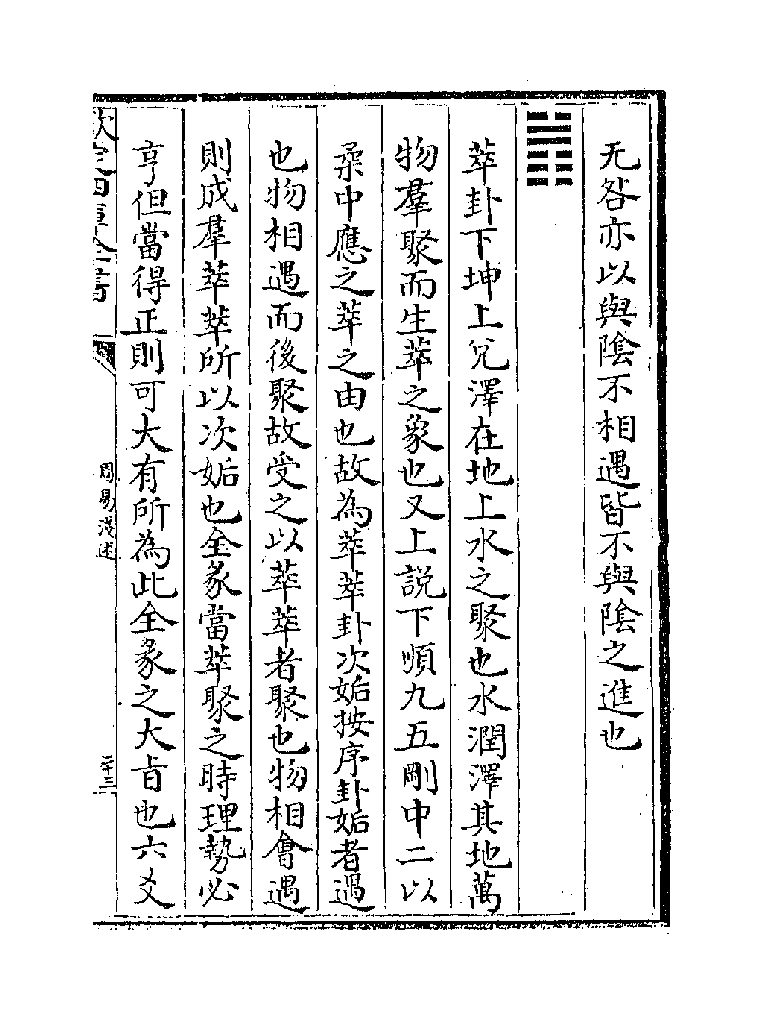 无咎亦以與陰不相遇皆不與陰之進也
䷬
萃卦下坤上兌澤在地上水之聚也水潤澤其地萬
物羣聚而生萃之象也又上說下順九五剛中二以
柔中應之萃之由也故為萃萃卦次姤按序卦姤者遇
也物相遇而後聚故受之以萃萃者聚也物相會遇
則成羣萃萃所以次姤也全彖當萃聚之時理勢必
亨但當得正則可大有所為此全彖之大旨也六爻
欽定四庫全書
周易淺述
二十三